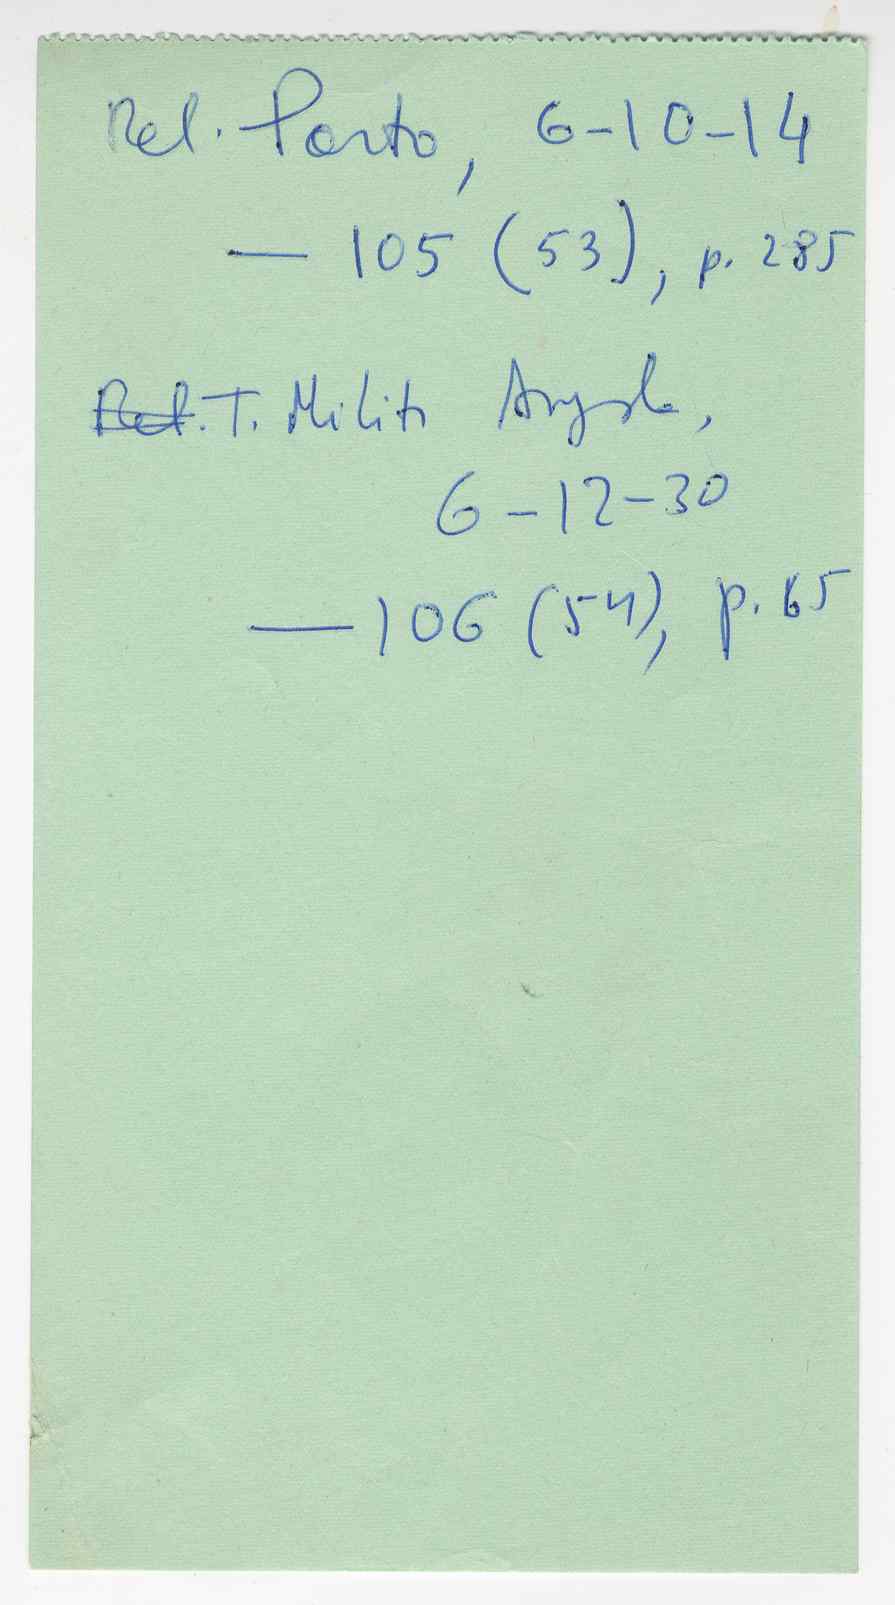 Rel. Porto, 6-10-14
— 105 (53), p. 285
Rel. T. Milit. Angola,
6-12-30
— 106 (54), p. 65